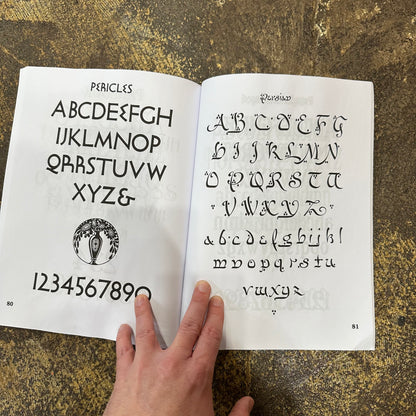 PERICLES
ABCDEFGH
IJKLMNOP
QRRSTUVW
XYZ&
1234567890
80
Persian
ABCDEFG
HIJKLMN
OPQRSTU
VWXYZ
abcdefghijkl
mnopqrstu
vwxyz
81